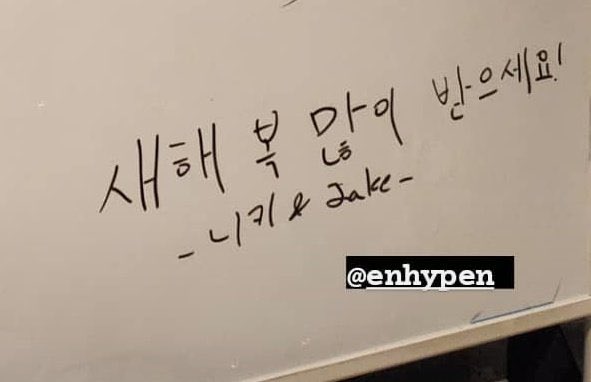 새해 복 많이 받으세요!
- 니키 & Jake -
@enhypen